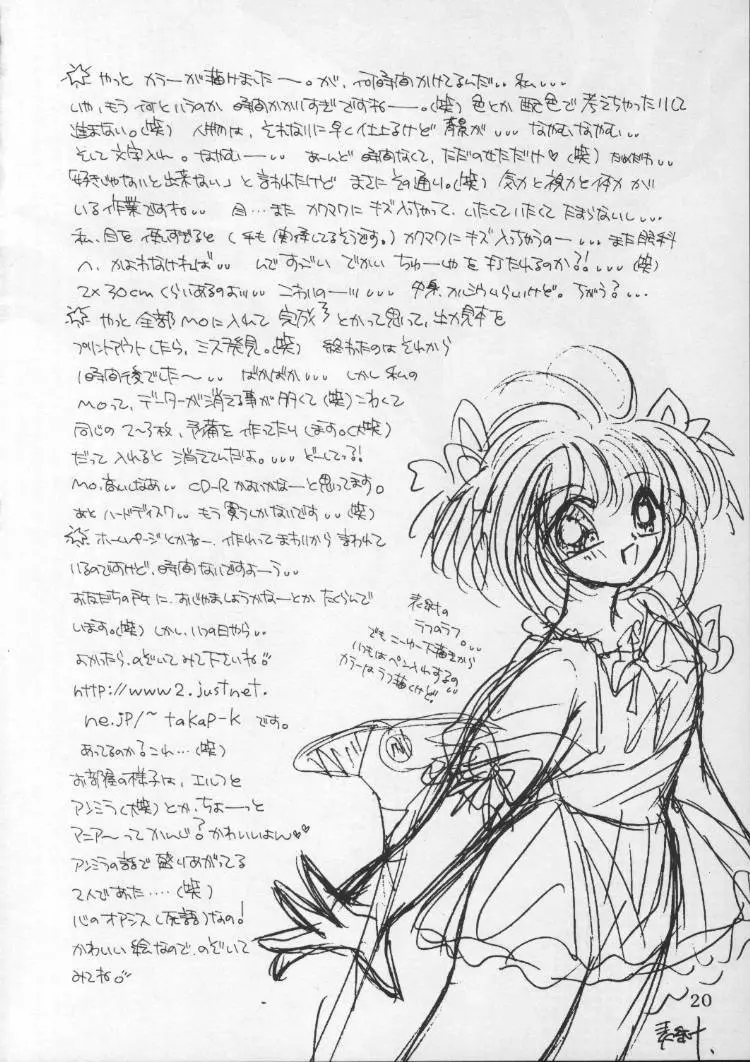 ☆やっと カラーが描けました～。が、何時間かけてるんだ‥私‥‥
いや、もう何というのか 時間かかりすぎですねー。(笑) 色とか 配色で 考えちゃったりして
進まない。(笑) 人物は、それなりに早く仕上るけど 背景が‥‥ なかむなかむ‥
そして文字入れ。なかむー‥ あーんど 時間なくて、ただのせただけ♡(笑) だめだわ‥
「好きじゃないと出来ない」と言われたけど まさにその通り。(笑) 気力と視力と体力が
いる作業ですね‥ 目…また カクマクに キズ入っちゃって、いたくていたくて たまらないし‥‥
私、目を使いすぎると (手も関係してるそうです。) カクマクに キズ入っちゃうのー‥‥また眼科
へ、かよわなければ‥ んですっごい でかい ちゅーしゃを 打たれるのか?!‥‥(笑)
2×30cmくらいあるのよ‥‥ こわいのー‥‥ ちがう?‥‥
☆やっと 全部 MOに入れて 完成♪とかって思って、出力見本を
プリントアウトしたら、ミス発見。(笑) 終わたのは それから
1時間後でした～‥ ばかばか‥‥ しかし 私の
MOって、データーが消える事が多くて(笑)こわくて
同じの 2～3枚、予備を 作ってたりします。(大笑)
だって入れると 消えてんだよ。‥‥どーしてっ?!
MO、高いしなあ‥ CD-R かおいかなーと思ってます。
あと ハードディスク‥ もう買うしかないです‥(笑)
☆ホームページとかねー、作れってまわりから言われて
いるのですけど、時間ないですよーう‥
お友だちの所に、おじゃましようかなーとか たくらんで
います。(笑) しかし、いつの日やら‥
よかたら、のぞいてみて下さいね‥
http://www2.justnet.
ne.jp/~takap-k です。
あってるのかな これ…(笑)
お部屋の様子は、エルフと
アンミラ(大笑)とか、ちょーっと
マニア～って かんじ?かわいいよん♡♡
アンミラの話で 盛りあがってる
2人であった‥‥(笑)
心のオアシス(死語)なの!
かわいい絵なので、のぞいて
みてね‥
表紙の
ラフのラフ。‥‥
でもこーゆー下描きから
いつもはペン入れするの
カラーはラフ描くけど。‥
20